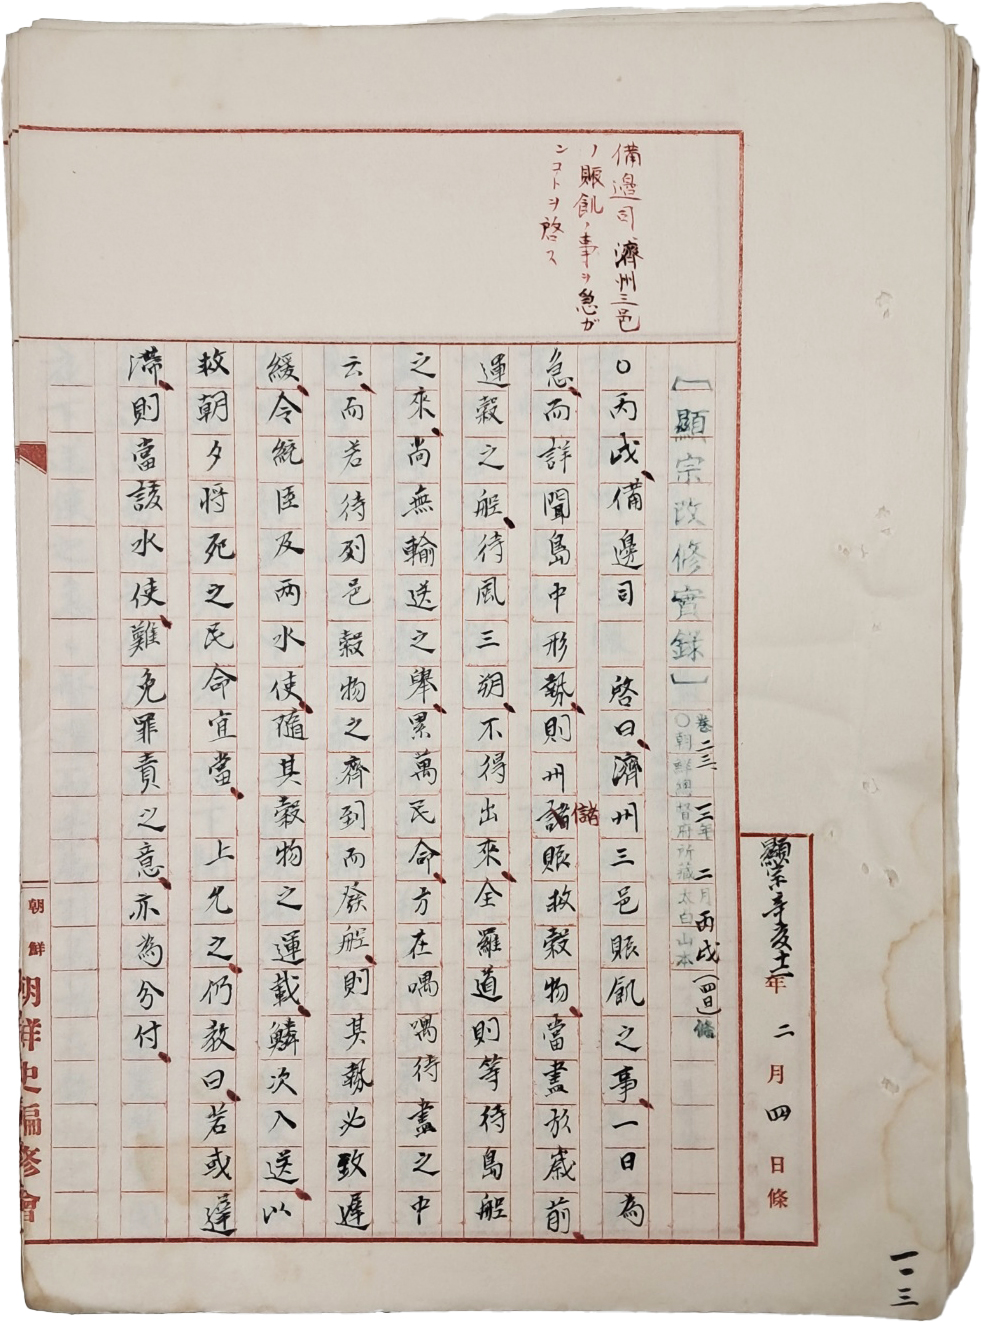 備邊司濟州三邑
ノ賑飢ノ事ヲ急ガ
ンコトヲ啓ス
顯宗辛亥十二年二月四日條
【顯宗改修實錄】卷二三 三年 二月丙戌(四日)條
○朝鮮總督府所藏太白山本
○丙戌、備邊司 啓曰、濟州三邑賑飢之事、一日為
急、而詳聞島中形勢、則州諸儲賑救穀物、當盡於歲前、
運穀之船、待風三朔、不得出來、全羅道則等待島船
之來、尚無輸送之舉、累萬民命、方在喁喁待盡之中
云、而若待列邑穀物之齊到而發船、則其勢必致遲
緩、令統臣及兩水使、隨其穀物之運載、鱗次入送、以
救朝夕將死之民命宜當、 上允之、仍教曰、若或遲
滯、則當該水使、難免罪責之意、亦為分付、
朝鮮
朝鮮史編修會
一一三